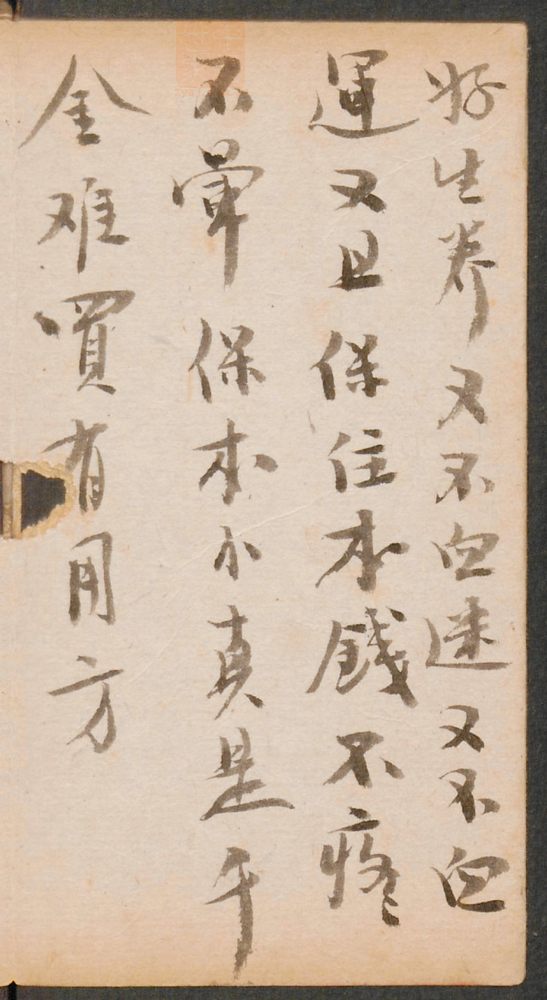 好生养又不血迷又不血
運又且保住本錢不疼
不暈保本小真是千
金难買有用方